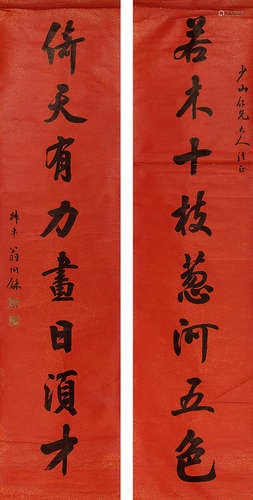 少山仁兄大人法正
若木十枝葱河五色
倚天有力畫日須才
翁同龢